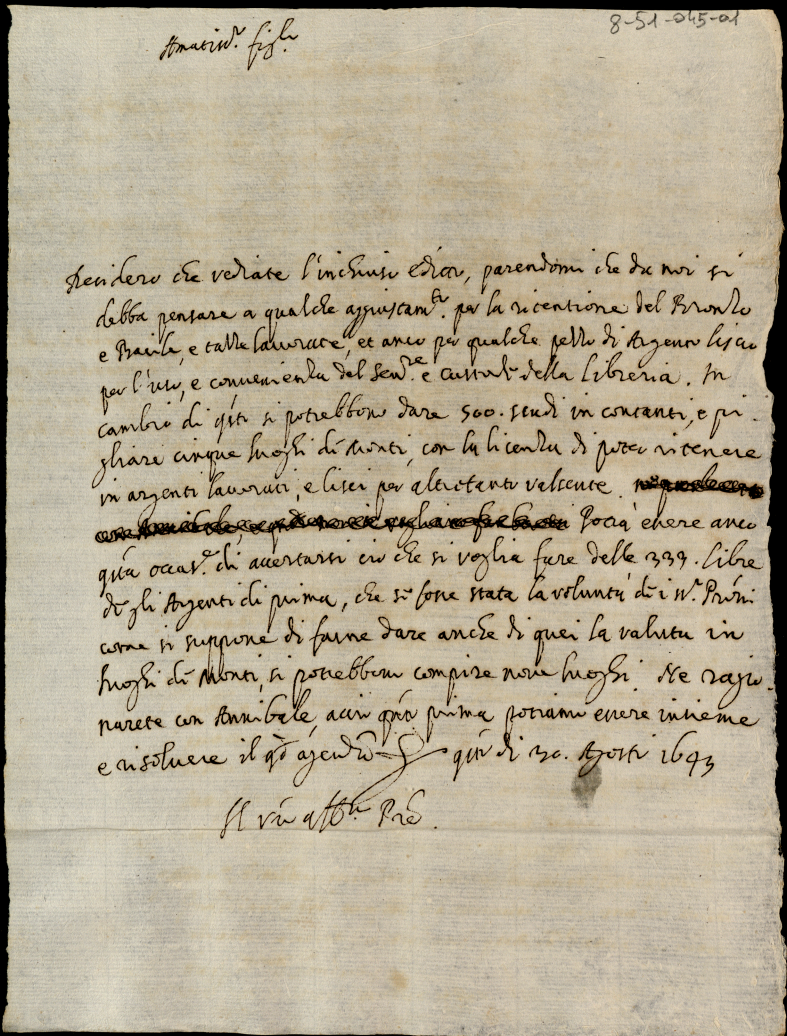 8-51-045-01
Amatis.º figl.
Desidero che vediate l'inchiuso editto, parendomi che da noi si
debba pensare a qualche aggiustam.to per la ritentione del Bronzo
e Bacile, e tazze lavorate, et anco per qualche pezzo di Argento liscio
per l'uso, e convenienza del Sem.re e custode della libreria. In
cambio di q.ti si potrebbono dare 500. scudi in contanti, e pi-
gliare cinque luoghi di Monti, con la licenza di poter ritenere
in argenti lavorati, e lisci per altretanto valsente.
Potrà essere anco
q.ta occas.e di accertarsi ciò che si voglia fare delle 333. libre
de gli Argenti di prima, che se fosse stata la voluntà de i SS.ri P.roni
come si suppone di farne dare anche di quei la valuta in
luoghi di Monti, si potrebbono compire nove luoghi. Ne ragio-
narete con Annibale, acciò q.to prima potiamo essere insieme
e risolvere il q.d agendũ q.to di 30. Agosti 1643
Il v.ro aff.mo P.re.